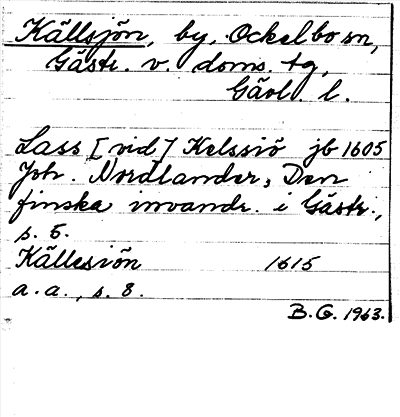 Källsjön, by, Ockelbo sn,
Gästr. v. doms. tg,
Gävl. l.
Lass [vid] Kelssiö jb 1605
Joh. Nordlander, Den
finska invandr. i Gästr.,
s. 5.
Källesiön 1615
a. a., s. 8.
B. G. 1963.